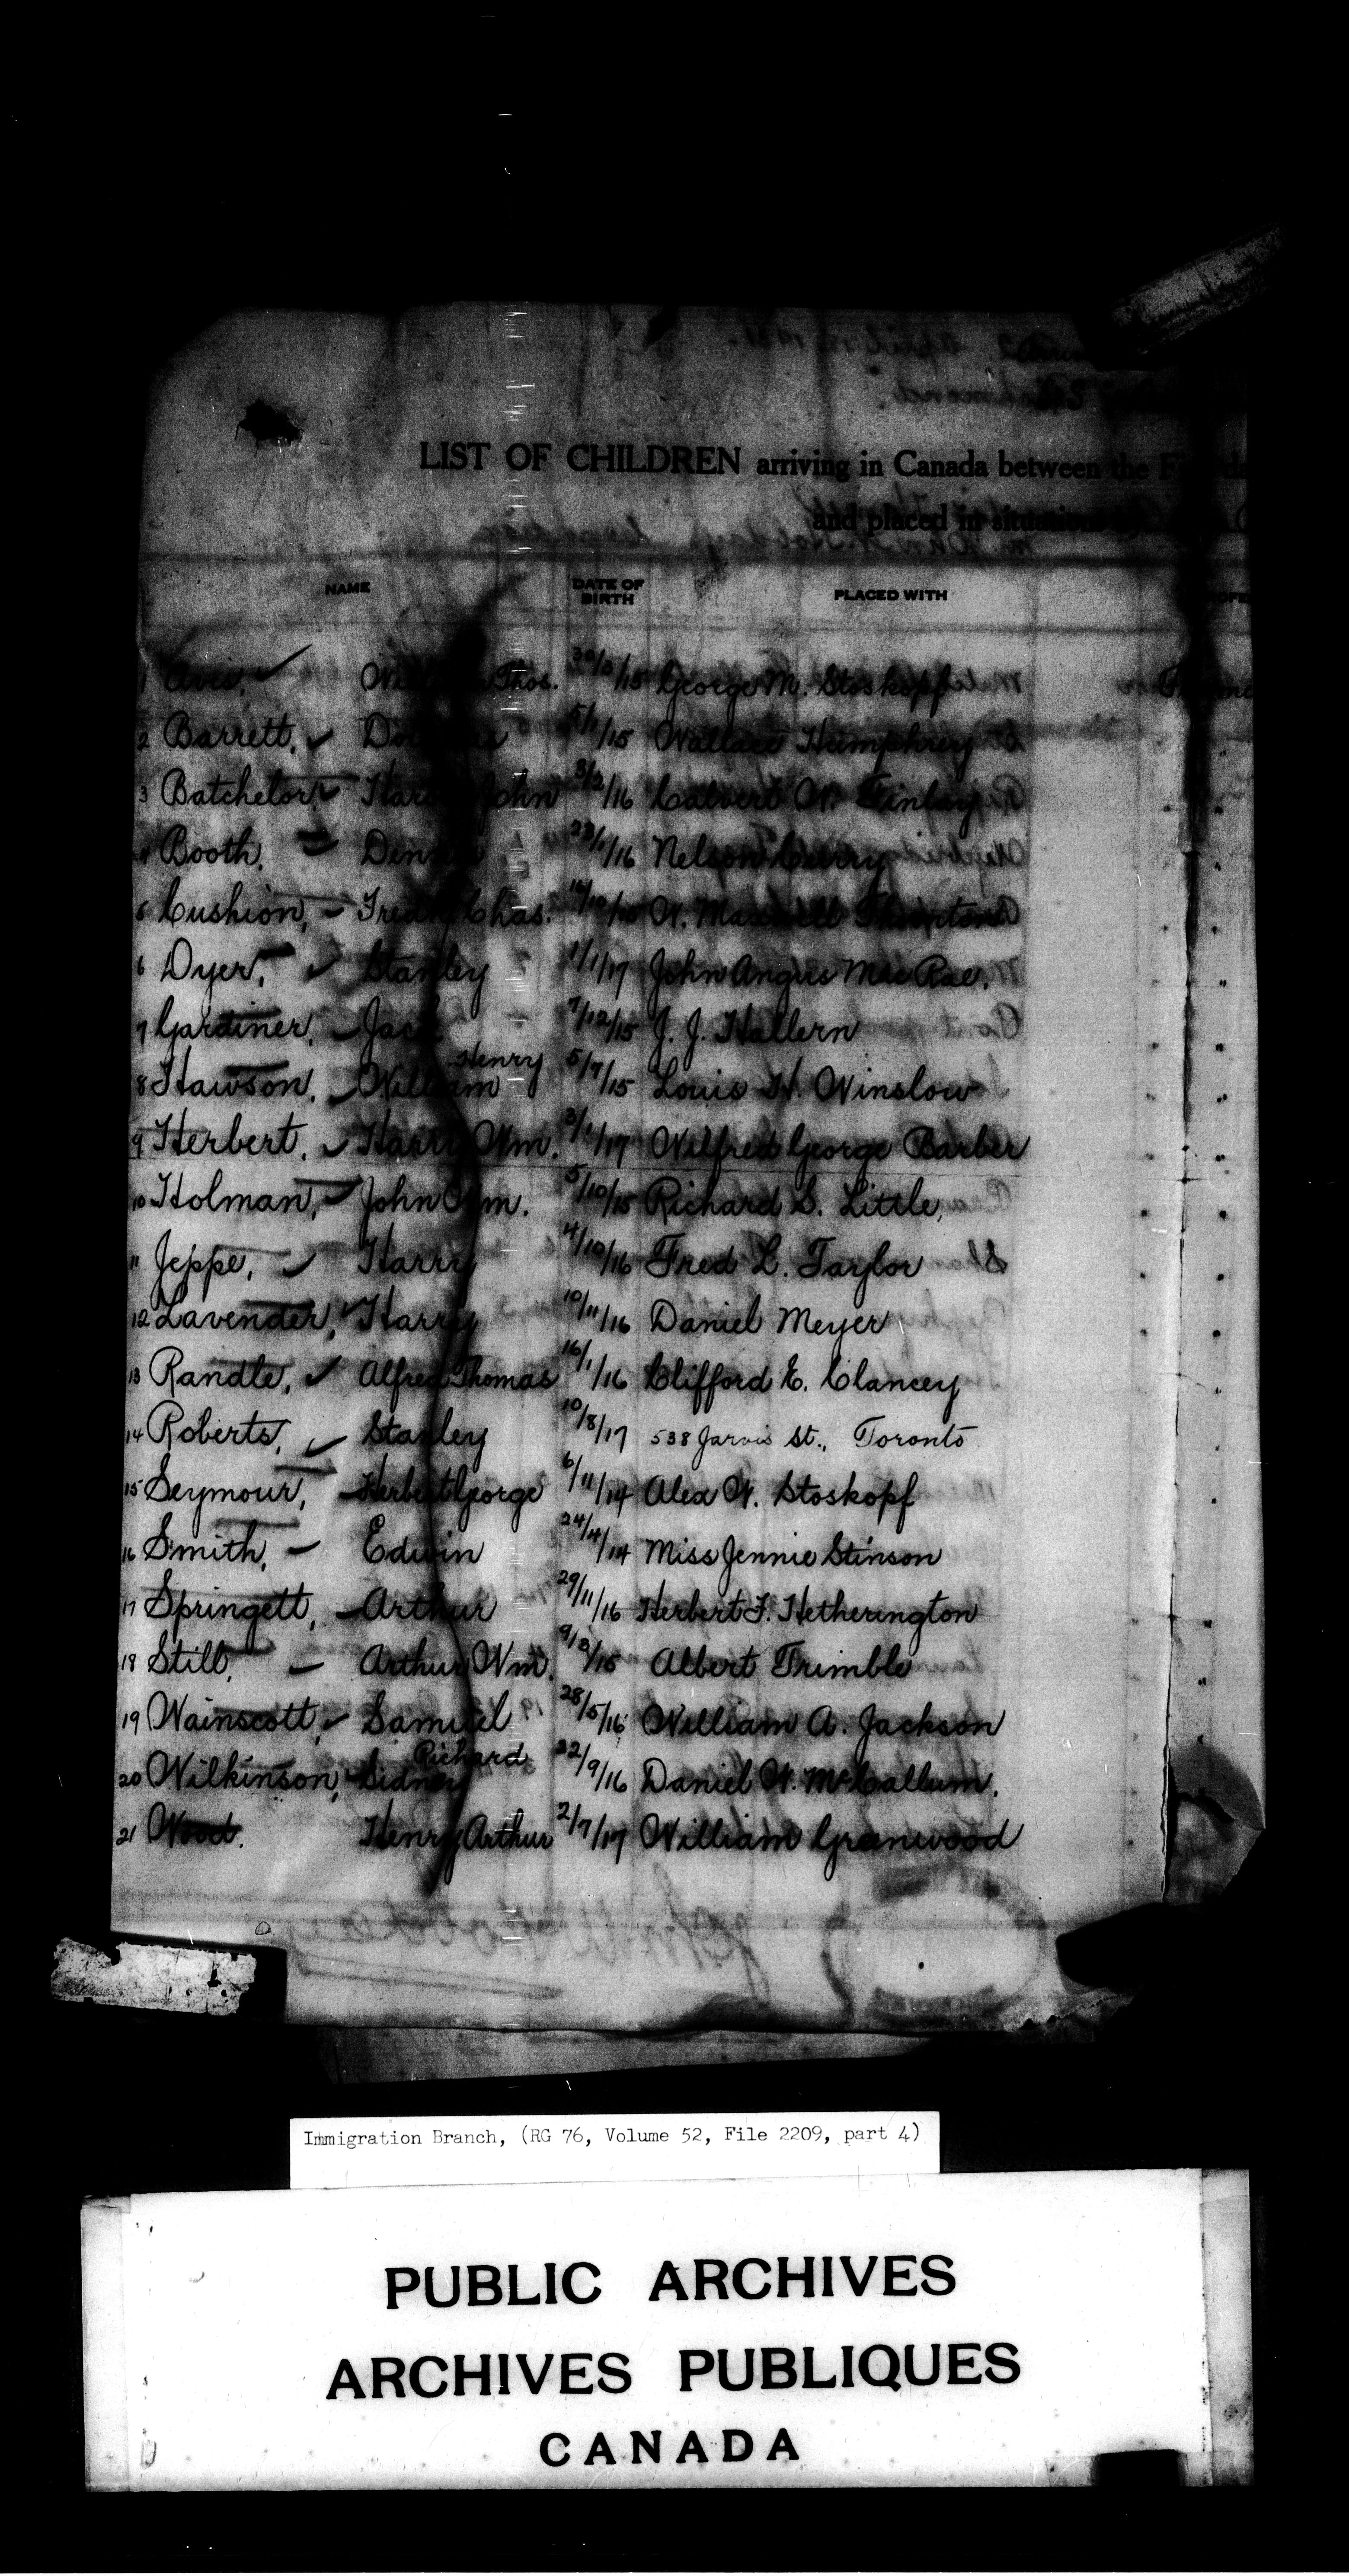 LIST OF CHILDREN arriving in Canada between the
and placed in situations
NAME DATE OF BIRTH PLACED WITH
1 Avis, Thos. 30/3/15 George M. Stoskopf
2 Barrett, 5/1/15 Wallace Humphrey
3 Batchelor, John 3/2/16 Calvert W. Finlay
4 Booth, 23/1/16 Nelson
5 Cushion, Fredk Chas. /10/15 W. Maxwell
6 Dyer, Stanley 1/1/17 John Angus MacRae.
7 Gardiner, Jack 7/12/15 J. J. Hallern
8 Hawson, William Henry 5/7/15 Louis H. Winslow
9 Herbert, Harry Wm. 3/1/17 Wilfred George Barber
10 Holman, John Wm. 5/10/15 Richard S. Little,
11 Jeppe, Harry 4/10/16 Fred L. Taylor
12 Lavender, Harry 10/11/16 Daniel Meyer
13 Randle, Alfred Thomas 16/1/16 Clifford E. Clancey
14 Roberts, Stanley 10/8/17 538 Jarvis St., Toronto
15 Seymour, Herbert George 6/11/14 Alex W. Stoskopf
16 Smith, Edwin 24/4/14 Miss Jennie Stinson
17 Springett, Arthur 29/11/16 Herbert F. Hetherington
18 Still, Arthur Wm. 9/3/15 Albert Trimble
19 Wainscott, Samuel 28/5/16 William A. Jackson
20 Wilkinson, Sidney Richard 22/9/16 Daniel W. McCallum.
21 Wood. Henry Arthur 2/7/17 William Greenwood
Immigration Branch, (RG 76, Volume 52, File 2209, part 4)
PUBLIC ARCHIVES
ARCHIVES PUBLIQUES
CANADA